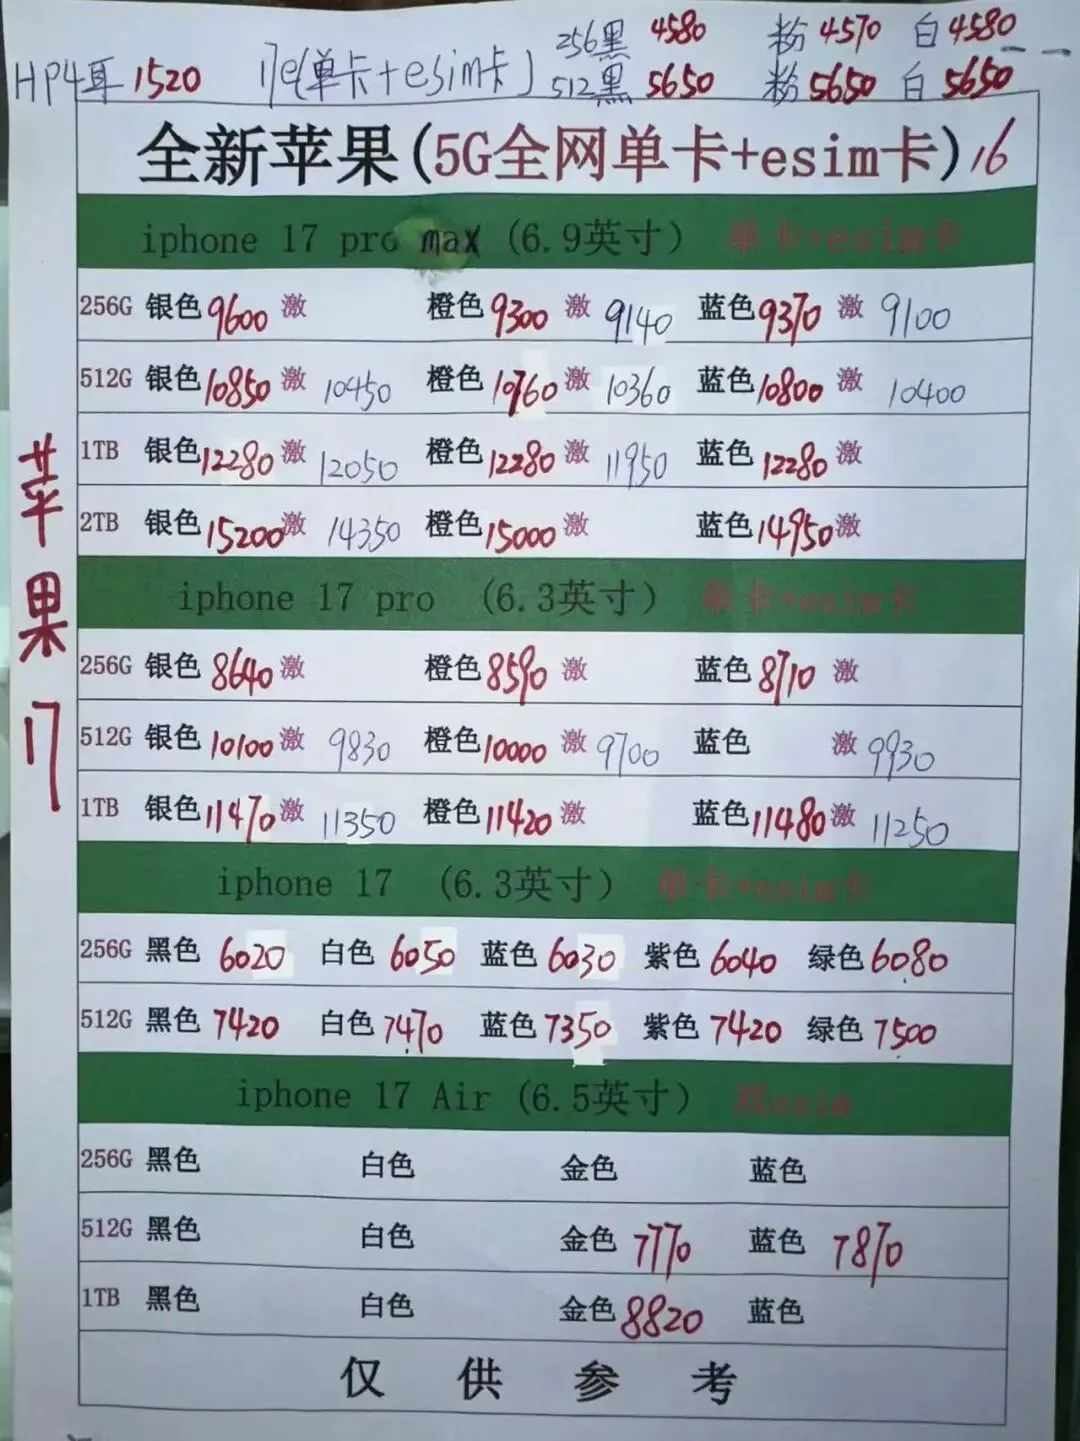 256黑 4580 粉 4570 白 4580
HP4耳 1520 17e(单卡+esim卡) 512黑 5650 粉 5650 白 5650
全新苹果(5G全网单卡+esim卡)16
iphone 17 pro max (6.9英寸) 单卡+esim卡
256G 银色 9600 激 橙色 9300 激 9140 蓝色 9370 激 9100
512G 银色 10850 激 10450 橙色 10760 激 10360 蓝色 10800 激 10400
1TB 银色 12280 激 12050 橙色 12280 激 11950 蓝色 12280 激
2TB 银色 15200 激 14350 橙色 15000 激 蓝色 14950 激
iphone 17 pro (6.3英寸) 单卡+esim卡
256G 银色 8640 激 橙色 8590 激 蓝色 8710 激
512G 银色 10100 激 9830 橙色 10000 激 9700 蓝色 激 9930
1TB 银色 11470 激 11350 橙色 11420 激 蓝色 11480 激 11250
iphone 17 (6.3英寸) 单卡+esim卡
256G 黑色 6020 白色 6050 蓝色 6030 紫色 6040 绿色 6080
512G 黑色 7420 白色 7470 蓝色 7350 紫色 7420 绿色 7500
iphone 17 Air (6.5英寸) 双esim
256G 黑色 白色 金色 蓝色
512G 黑色 白色 金色 7770 蓝色 7870
1TB 黑色 白色 金色 8820 蓝色
仅供参考
苹果17